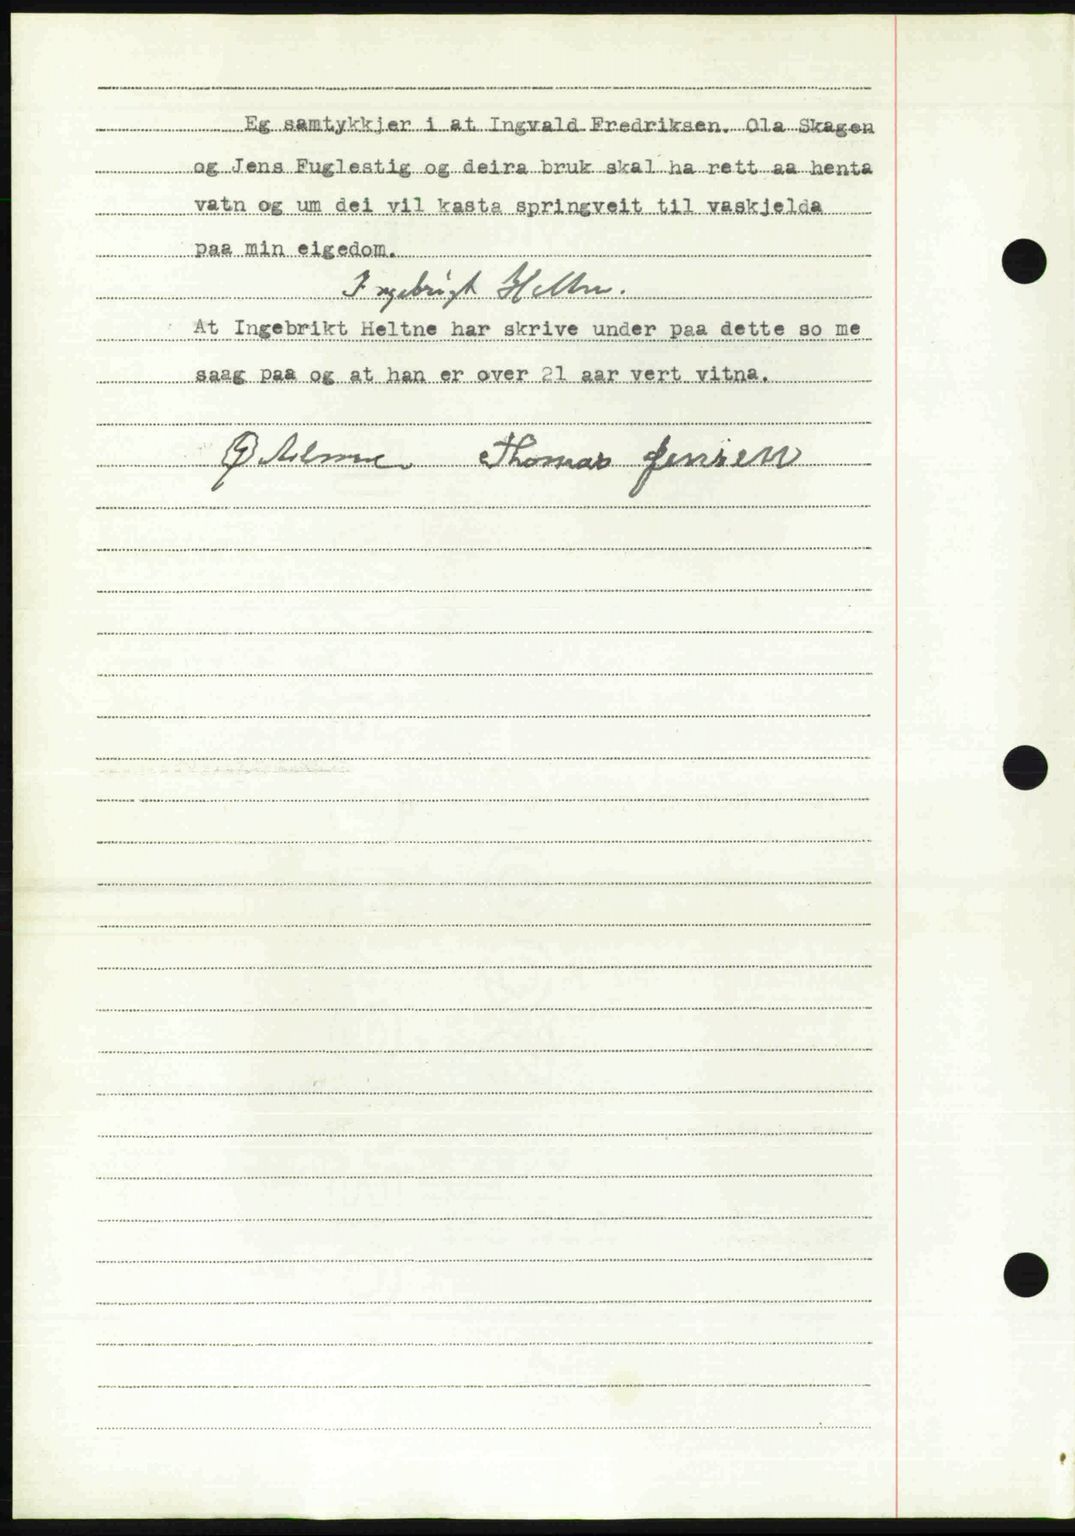 Eg samtykkjer i at Ingvald Fredriksen. Ola Skagen
og Jens Fuglestig og deira bruk skal ha rett aa henta
vatn og um dei vil kasta springveit til vaskjelda
paa min eigedom.
Ingebrigt Heltne.
At Ingebrikt Heltne har skrive under paa dette so me
saag paa og at han er over 21 aar vert vitna.
Thomas Jensen